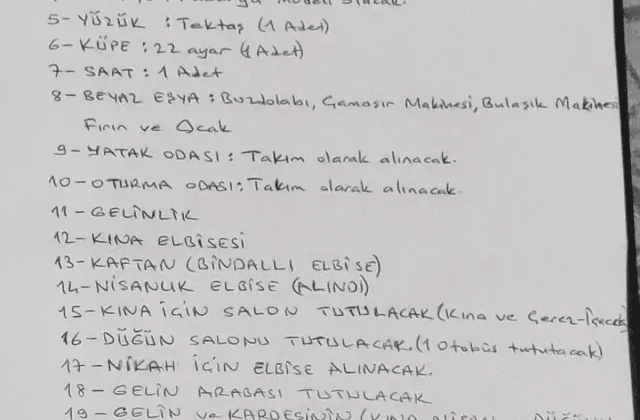 modeli olacak.
5- YÜZÜK : Tektaş (1 Adet)
6- KÜPE : 22 ayar (1 Adet)
7- SAAT : 1 Adet
8- BEYAZ EŞYA : Buzdolabı, Çamaşır Makinesi, Bulaşık Makinesi
Fırın ve Ocak
9- YATAK ODASI : Takım olarak alınacak.
10- OTURMA ODASI : Takım olarak alınacak.
11- GELİNLİK
12- KINA ELBİSESİ
13- KAFTAN (BİNDALLI ELBİSE)
14- NİŞANLIK ELBİSE (ALINDI)
15- KINA İÇİN SALON TUTULACAK (Kına ve Çerez-İçecek
16- DÜĞÜN SALONU TUTULACAK. (1 Otobüs tutulacak)
17- NİKAH İÇİN ELBİSE ALINACAK.
18- GELİN ARABASI TUTULACAK
19- GELİN ve KARDEŞİNİN (KINA